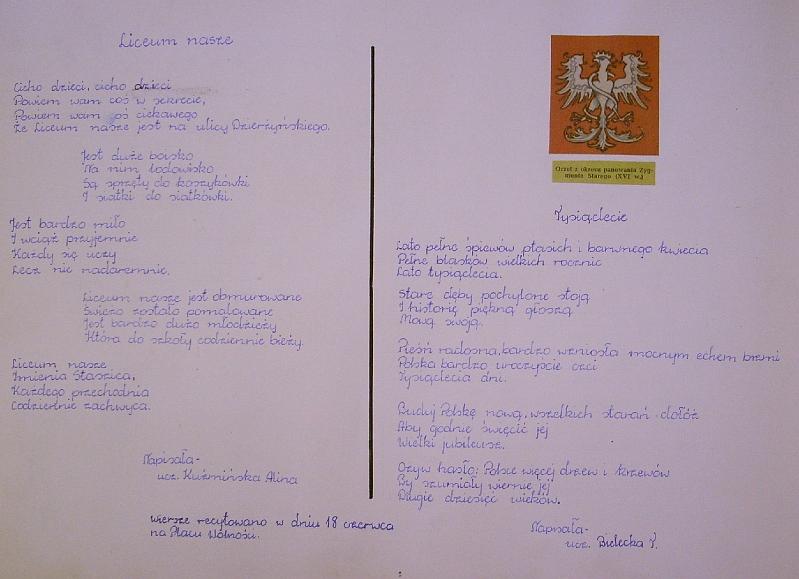 Liceum nasze
Cicho dzieci, cicho dzieci
Powiem wam coś w sekrecie,
Powiem wam coś ciekawego
Że Liceum nasze jest na ulicy Dzierżyńskiego.
Jest duże boisko
Na nim lodowisko
Są sprzęty do koszykówki
I siatki do siatkówki.
Jest bardzo miło
I wciąż przyjemnie
Każdy się uczy
Lecz nie nadaremnie.
Liceum nasze jest obmurowane
Świeżo zostało pomalowane
Jest bardzo dużo młodzieży
Która do szkoły codziennie bieży.
Liceum nasze
Imienia Staszica,
Każdego przechodnia
Codziennie zachwyca.
Napisała-
ucz. Kuźmińska Alina
Orzeł z okresu panowania Zyg-
munta Starego (XVI w.)
Tysiąclecie
Lato pełne śpiewów ptasich i barwnego kwiecia
Pełne blasków wielkich rocznic
Lato tysiąclecia.
Stare dęby pochylone stoją
I historię piękną głoszą
Nową swoją.
Pieśń radosna, bardzo wzniosła mocnym echem brzmi
Polska bardzo uroczyście czci
Tysiąclecia dni.
Buduj Polskę nową, wszelkich starań dołóż
Aby godnie święcić jej
Wielki jubileusz.
Ożyw hasło: Polsce więcej drzew i krzewów
By szumiały wiernie jej
Długie dziesięć wieków.
Napisała-
ucz. Bielecka T.
Wiersze recytowano w dniu 18 czerwca
na Placu Wolności.